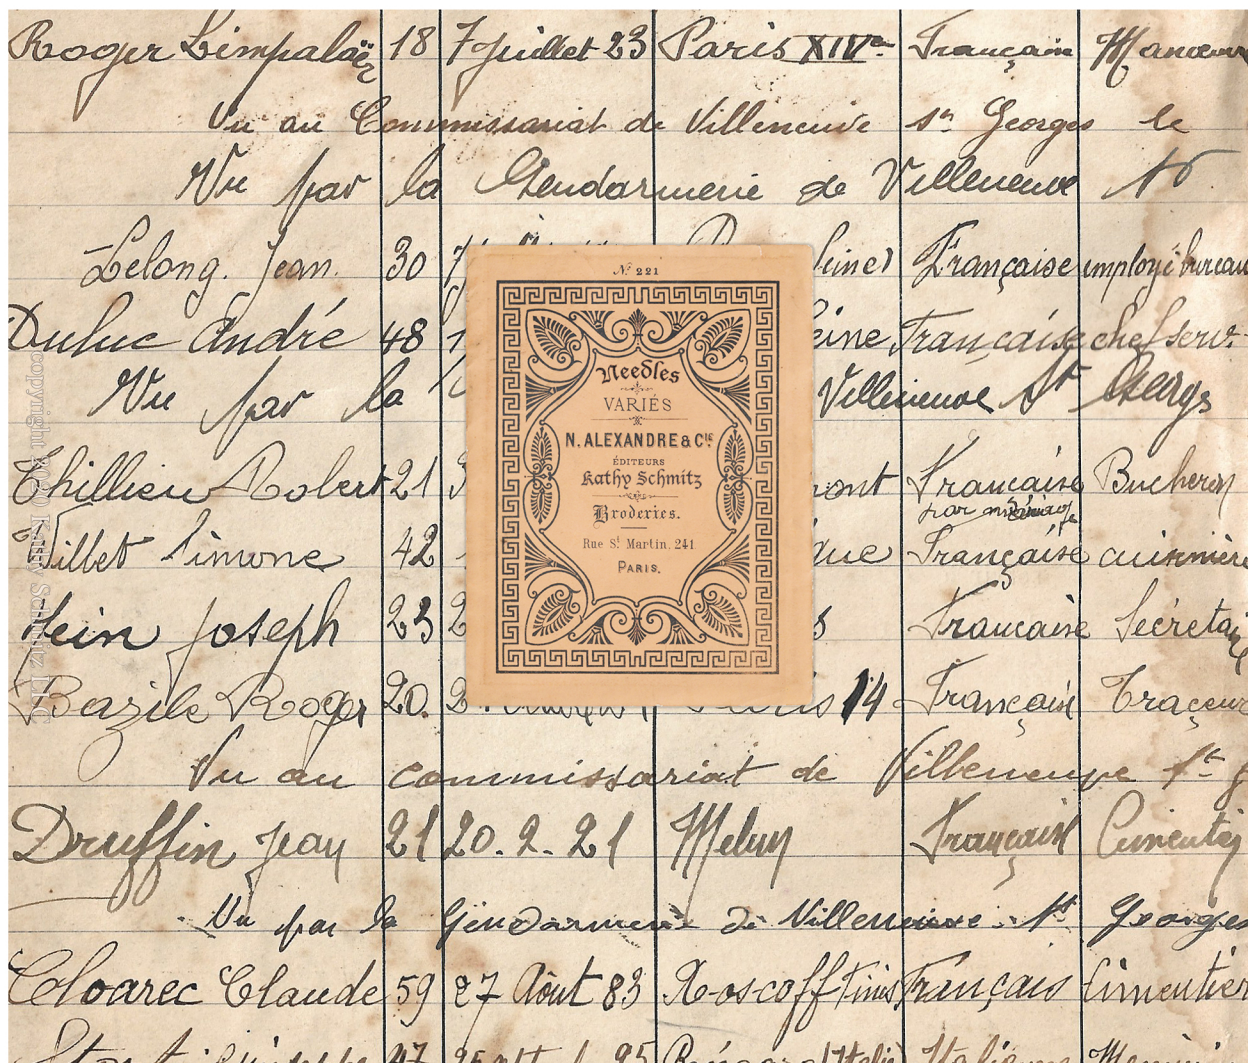 Roger Limpalaër 18 7 juillet 23 Paris XIVe Français Manœuvre
Vu au Commissariat de Villeneuve St Georges le
Vu par la Gendarmerie de Villeneuve St
Lelong. Jean. 30 Française employé bureau
Duluc André 48 1 Seine Française chef serv.
Vu par la Villeneuve St Georges
Thillieu Robert 21 3 mont Française Bucheron
par mariage
Villet Simone 42 que Française cuisinière
Joseph 23 2 s Française Secrétaire
Bazile Roger 20. 2 Paris 14 Français Traceur
Vu au commissariat de Villeneuve St G
Druffin Jean 21 20.2.21 Melun Français Cimentier
Vu par la Gendarmerie de Villeneuve St Georges
Cloarec Claude 59 27 Août 83 Roscoff Finis Français Cimentier
47 95 Italie
Nº 221
Needles
VARIÉS
N. ALEXANDRE & Cie
ÉDITEURS
Kathy Schmitz
Broderies.
Rue St. Martin, 241
PARIS.
copyright 2020 Kathy Schmitz LLC